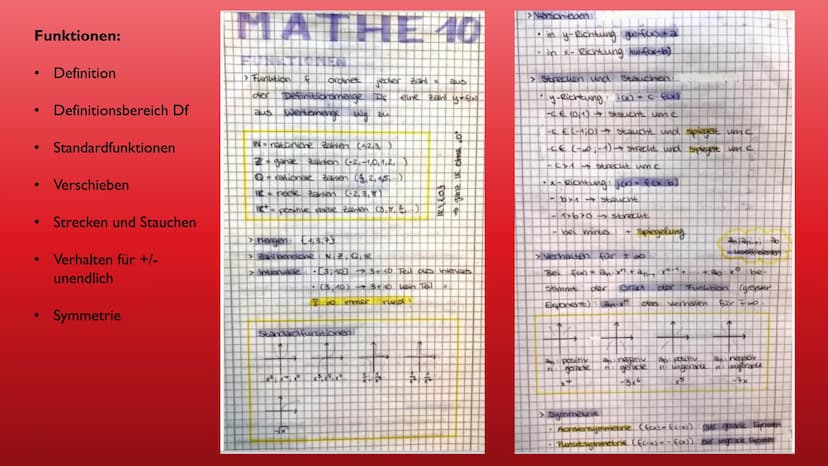 Funktionen:
• Definition
• Definitionsbereich Df
• Standardfunktionen
• Verschieben
• Strecken und Stauchen
• Verhalten für +/-
unendlich
• Symmetrie
MATHE 10
FUNKTIONEN
> Funktion f ordnet jeder Zahl x aus
der Definitionsmenge Df eine Zahl y=f(x)
aus Wertemenge Wf zu
N = natürliche Zahlen (1,2,3, )
Z = ganze Zahlen (-2,-1,0,1,2, )
Q = rationale Zahlen
R = reelle Zahlen
R+ = positive reelle Zahlen
R\{0}
→ ganz R ohne "0"
> Mengen: {1;3;7}
> Zahlbereiche: N, Z, Q, R
> Intervalle: • [3;10] → 3+10 Teil des Intervalls
• (3;10) → 3+10 kein Teil
immer rund!
Standardfunktionen:
√x
> Verschieben:
• in y-Richtung g(x)=f(x)+a
• in x-Richtung
> Strecken und Stauchen:
• y-Richtung: g(x) = c · f(x)
- c ∈ (0;1) → staucht um c
- c ∈ (-1;0) → staucht und spiegelt um c
- c ∈ (-∞;-1) → streckt und spiegelt um c
- c>1 → streckt um c
• x-Richtung: g(x) = f(x·b)
- b>1 → staucht
- 1>b>0 → streckt
- bei minus → Spiegelung
> Verhalten für ± ∞
Bei f(x) = be-
stimmt der Grad der Funktion (größter
Exponent): das Verhalten für
an: positiv an: negativ an: positiv an: negativ
n: gerade n: gerade n: ungerade n: ungerade
x⁴ -3x² x⁵ -7x
> Symmetrie
• Achsensymmetrie (f(x)=f(-x)): nur gerade Exponenten
• Punktsymmetrie (f(-x)=-f(x)): nur ungerade Exponenten